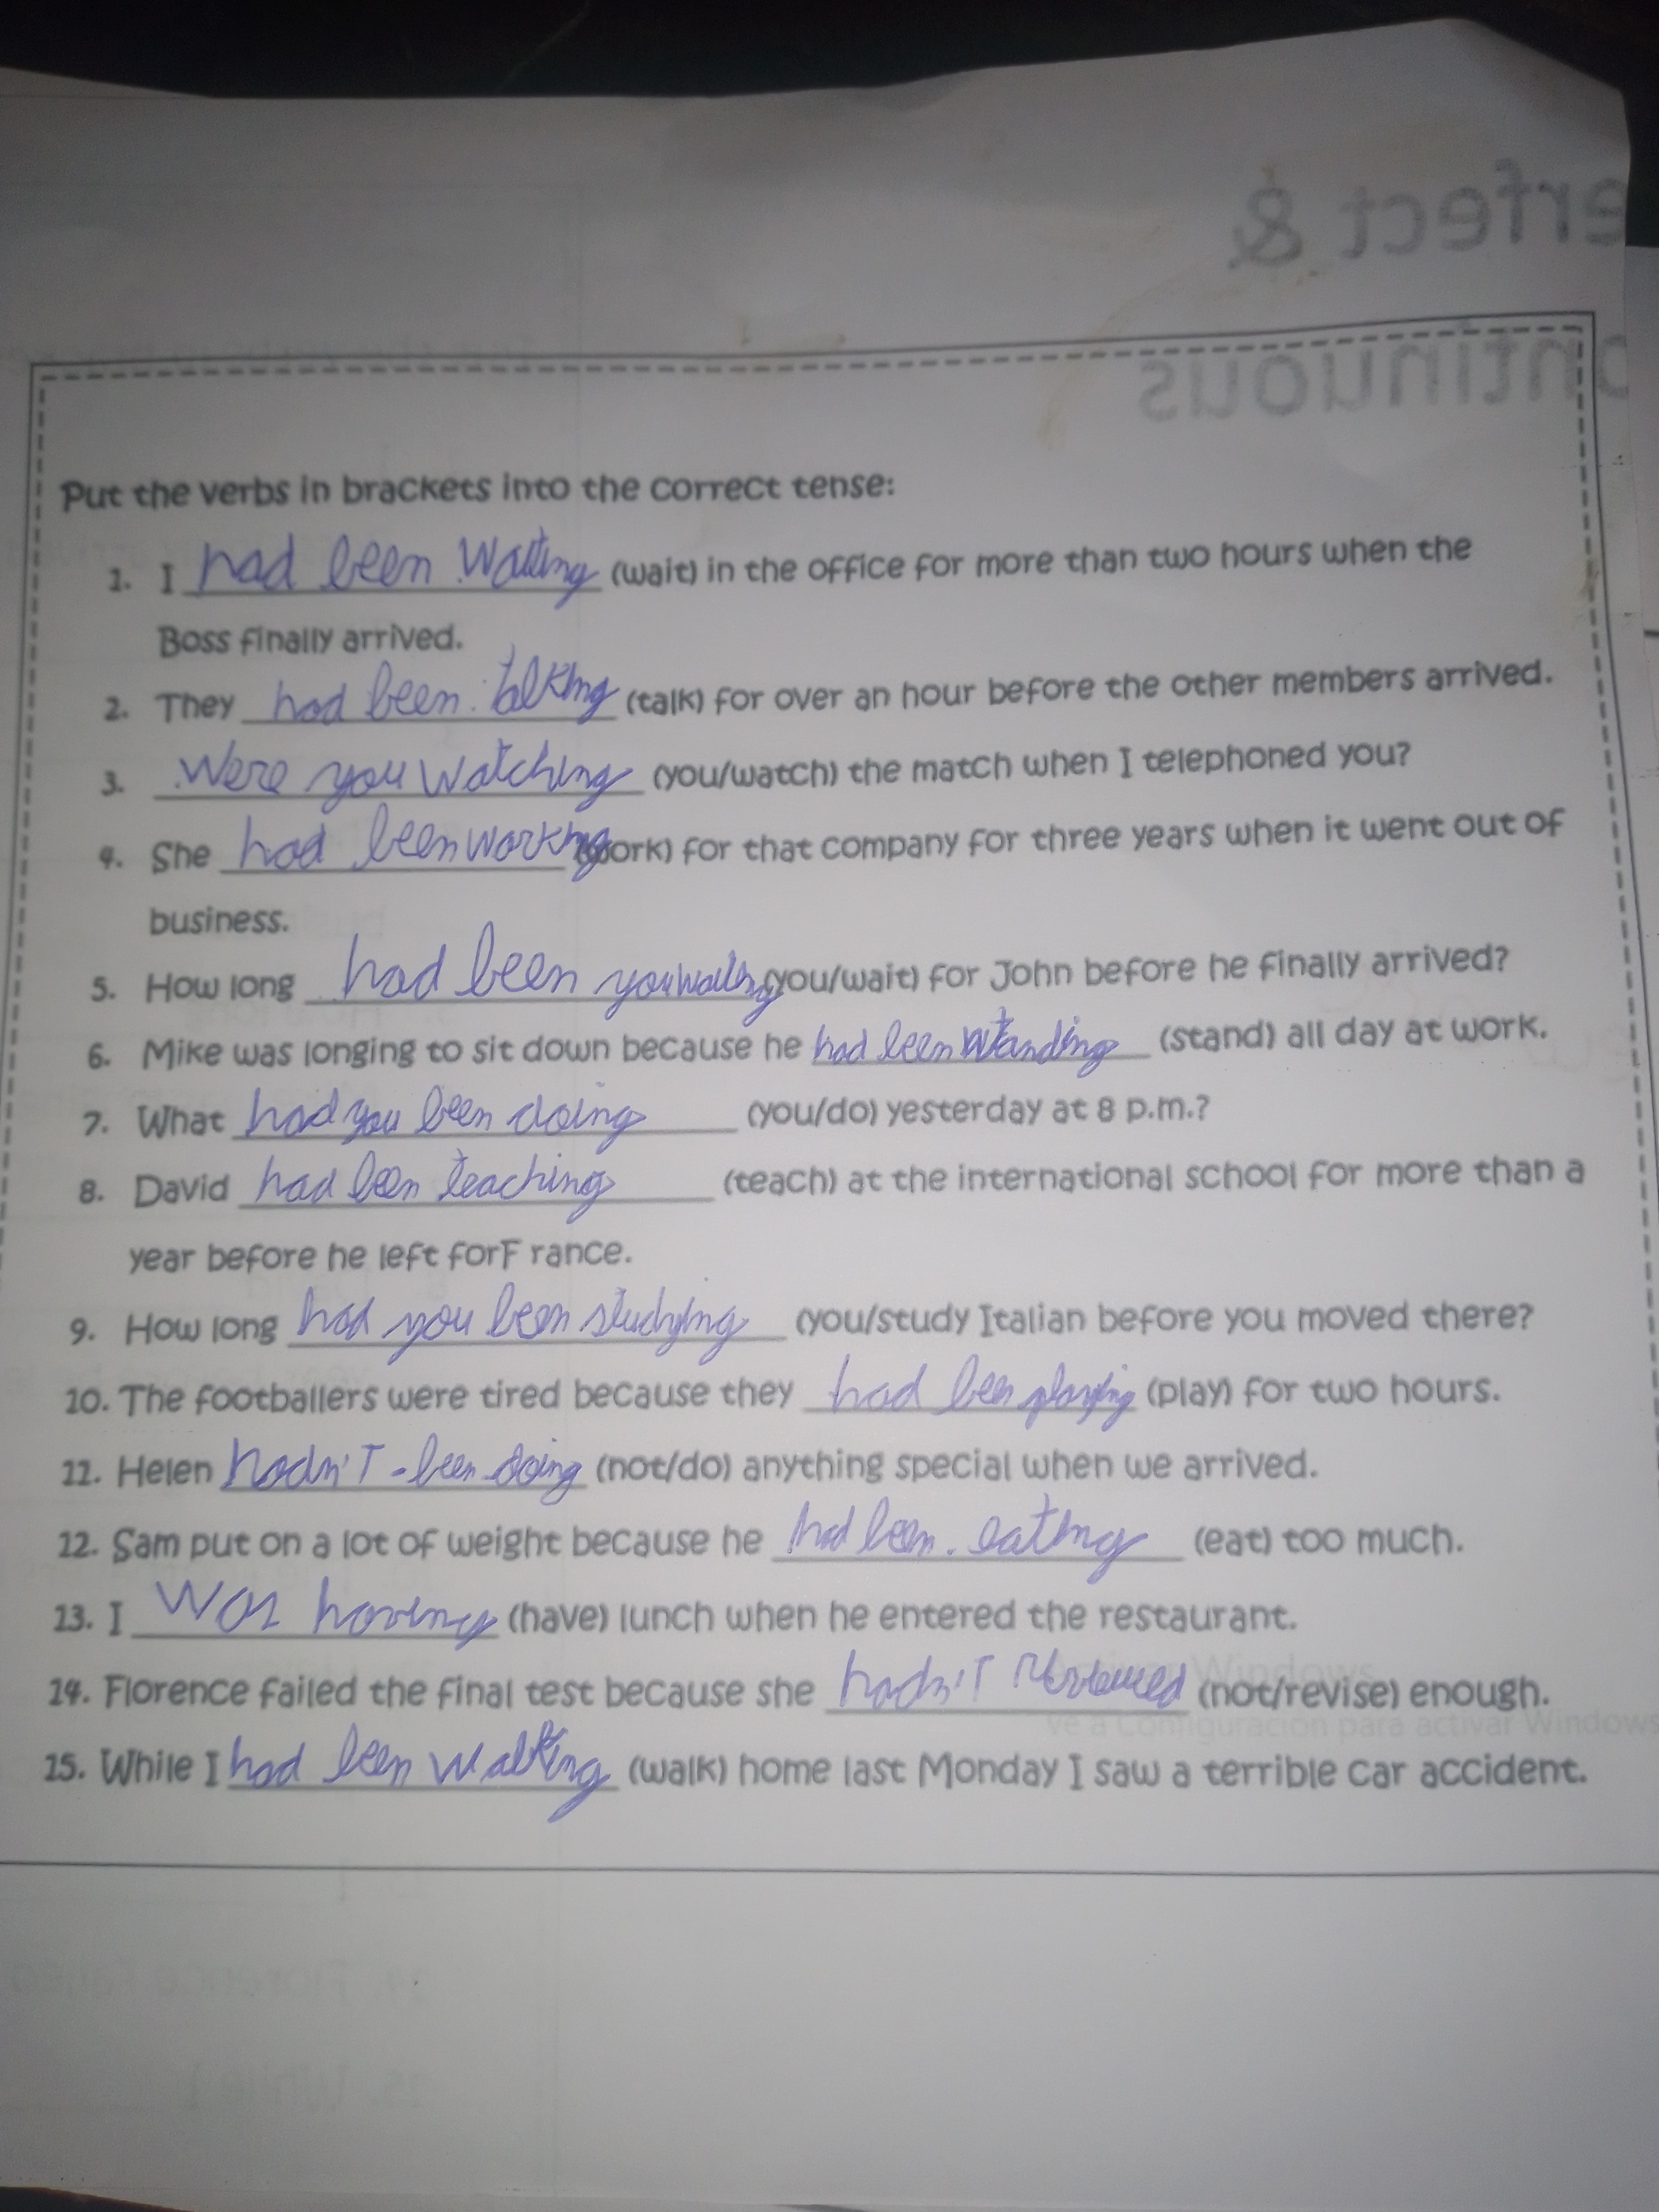 erfect &
ontinuous
Put the verbs in brackets into the correct tense:
1. I had been Waiting (wait) in the office for more than two hours when the
Boss finally arrived.
2. They had been talking (talk) for over an hour before the other members arrived.
3. Were you Watching (you/watch) the match when I telephoned you?
4. She had been working (work) for that company for three years when it went out of
business.
5. How long had been you (you/wait) for John before he finally arrived?
6. Mike was longing to sit down because he had been (stand) all day at work.
7. What had you been doing (you/do) yesterday at 8 p.m.?
8. David had been teaching (teach) at the international school for more than a
year before he left forF rance.
9. How long had you been studying (you/study Italian before you moved there?
10. The footballers were tired because they had been playing (play) for two hours.
11. Helen hadn'T - been doing (not/do) anything special when we arrived.
12. Sam put on a lot of weight because he had been. eating (eat) too much.
13. I Was having (have) lunch when he entered the restaurant.
14. Florence failed the final test because she hadn'T (not/revise) enough.
Ve a Configuración para activar Windows
15. While I had been walking (walk) home last Monday I saw a terrible car accident.